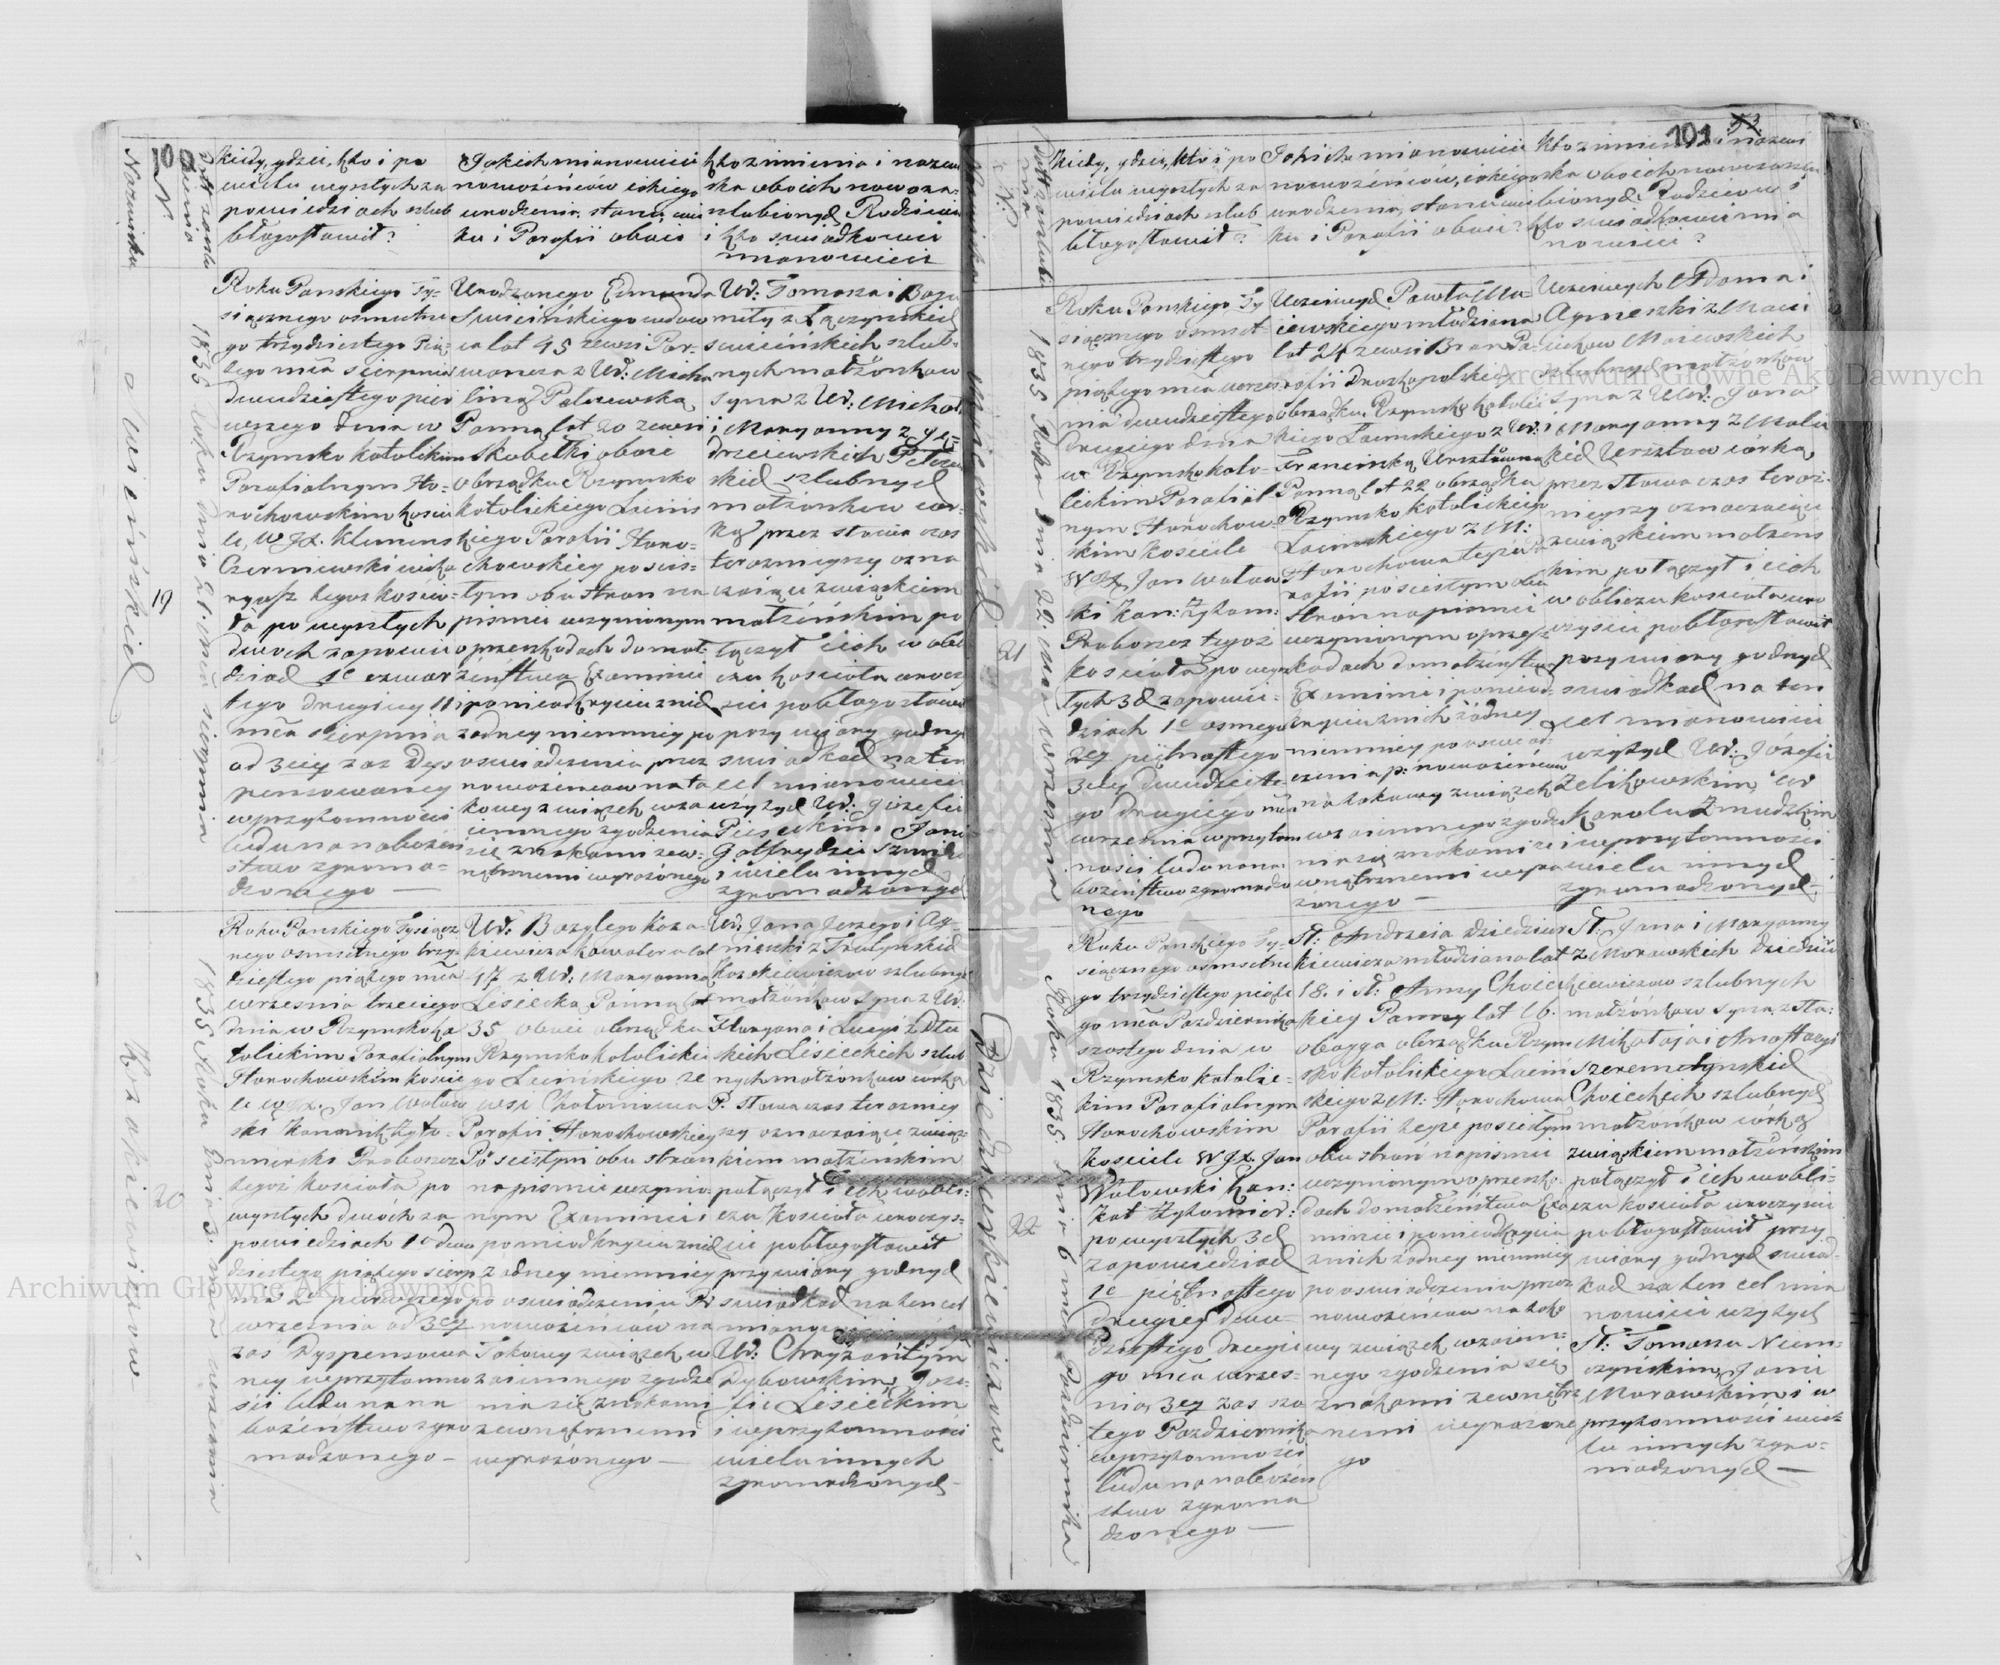 100
Nazwiska
N.
Data zaślu
bienia
Kiedy, gdzie, kto i po
wielu wyszłych za
powiedziach szlub
błogosławił?
Jakich mianowicie
nowożeńców iakiego
urodzenia, stanu, wie
ku i Parafii oboie
Kto z imienia i nazwi
ska oboich nowoza-
szlubionych Rodziców
i kto świadkowie
mianowicie
19
1835 Roku dnia 21. mca sierpnia
Roku Panskiego Ty-
siącznego osmsetne
go trzydziestego Pią
tego mca sierpnia
dwudziestego pier
wszego dnia w
Rzymsko katolickim
Parafialnym Ho-
rochowskim kościе
le, WJX. Klemens
Czerniewski wika
ryusz tegoż kościo-
ła po wyszłych
dwoch zapowie
dziach 1e czwar
tego drugiey 11
mca sierpnia
od 3ciey zaś Dys
pensowaney
w przytomności
ludu na nabożeń
stwo zgroma-
dzonego —
Urodzonego Edmunda
wca lat 45 zewsi Par-
z Ur: Micha
liną Pelczewską
Panną lat 20 zewsi
Skobełki oboie
Obrządku Rzymsko
katolickiego Łaciń
skiego Parafii Horo-
chowskiey po ścis-
łym obu stron na
pismie uczynionym
o przeszkodach do mał-
żeństwa Examinie
i poniedkryciu z nich
żadney niemniey po
oswiadczeniu przez
nowożeńcow na ta
kowy związek wza
iemnego zgodzenia
się znakami zew-
nętrznemi wyrażonego
Ur: Tomasza i Bogu
miły z Łączynskich
szlub-
nych małżonkow
syna z Ur: Michał
i Maryanny z Ję-
drzeiewskich Pelczew
skich szlubnych
małżonkow cor-
ką przez słowa czas
teraznieyszy ozna
czaiące związkiem
małżeńskim po
łączył i ich w obli
czu kościoła uroczy
ście pobłogosławił
przy wiary godnych
swiadkach na ten
cel mianowicie
użytych Ur: Józefie
Piaseckim, Janie
Gotfrydzie
i wielu innych
zgromadzonych
20
Kozakiewiczow
1835 Roku dnia 3. mca wrzesnia
Roku Panskiego Tysiącz
nego osmsetnego trzy-
dziestego piątego mca
wrzesnia trzeciego
dnia w Rzymsko ka
tolickim Parafialnym
Horochowskim kościе
le WJX. Jan Wołow
ski Kanonik Żyto-
mierski Proboszcz
tegoż kościoła po
wyszłych dwoch za
powiedziach 1e dwu
dziestego piątego sierp
nia 2e pierwszego
wrzesnia od 3ey
zaś Dyspensowa
ney w przytomno
ści ludu na na
bożeństwo zgro
madzonego —
Ur: Bazylego Koza-
kiewicza kawalera lat
17 z Ur: Maryanną
Lisiecką Panną lat
35 oboie obrządku
Rzymsko katolickie
go Łacińskiego ze
wsi Chołoniowa
Parafii Horochowskiey
Po scisłym obu stron
na pismie uczynio-
nym Examinie i
poniedkryciu z nich
żadney niemniey
po oswiadczeniu Pr
nowożeńcow na
Takowy związek w
zaiemnego zgodze
nia się znakami
zewnętrznemi
wyrażonego —
Ur: Jana Jerzego i Ag-
nieszki z Trulynskich
Kozakiewiczow szlubnych
małżonkow syna z Ur:
Floryana i Łucyi z Dłu
skich Lisieckich szlub
nych małżonkow corką
P. słowa czas terazniey
szy oznaczaiące związ-
kiem małżeńskim
połączył i ich w obli-
czu kościoła uroczys-
cie pobłogosławił
przy wiary godnych
swiadkach na ten cel
Ur: Chryzantym
Dybowskim, Joze-
fie Lisieckim
i w przytomności
wielu innych
zgromadzonych
101
Data zaszlubie
nia
Kiedy, gdzie, kto i po
wielu wyszłych za
powiedziach szlub
błogosławił?
Jakich mianowicie
nowożeńców, iakiego
urodzenia, stanu wie
ku i Parafii oboie?
Kto z imienia i nazwi
ska oboich nowozaszlu
bionych Rodziców i
kto swiadkowie mia
nowicie?
21
Maiewskich
1835 Roku dnia 22. mca wrzesnia
Roku Panskiego Ty
siącznego osmset-
nego trzydziestego
piątego mca wrzes
nia dwudziestego
drugiego dnia
w Rzymsko kato-
lickim Parafial
nym Horochow-
skim kościеle
WJX Jan Wołow
ski Kan: Żytom:
Proboszcz tegoż
kościoła po wysz
łych 3ch zapowie-
dziach 1e osmego
2ey piętnastego
3ciey dwudzieste
go drugiego mca
wrzesnia w przytom
nosci ludu na na-
bożeństwo zgromadzo
nego
Uczciwych Pawła Ma-
iewskiego młodziana
lat 24 zewsi Bran Pa-
rafii Druszkopolskiey
obrządku Rzymsko katolic
kiego Łacinskiego z Ur:
Franciszką Ursztowną
Panną lat 22 obrządku
Rzymsko katolickiego
Łacinskiego z M:
Horochowa teyże Pa
rafii po scisłym obu
stron na pismie
uczynionym o przesz
kodach do małżeństwa
Examinie i poniedk
ryciu z nich żadney
niemniey po oswiad-
czeniu p: nowożeńcow
na takowy związek
wzaiemnego zgodze
nia się znakami ze
wnętrznemi wyra
żonego —
Uczciwych Adama i
Agnieszki z Maci
Maiewskich
szlubnych małżonkow
syna z Ur: Jana
i Maryanny z Mali
kich Ursztow corką
przez słowa czas teraz-
nieyszy oznaczaiące
związkiem małżens
kim połączył i ich
w obliczu kościoła uro
czyscie pobłogosławił
przy wiary godnych
swiadkach na ten
cel mianowicie
użytych Ur: Józefie
Zelikowskim, Ur
Karolu Żmudzkim
i w przytomności
wielu innych
zgromadzonych —
22
Dziedzickiewiczow
Roku 1835 dnia 6 mca Pazdziernika
Roku Panskiego Ty-
siącznego osmsetne
go trzydziestego piąte
go mca Pazdziernika
szostego dnia w
Rzymsko katolic-
kim Parafialnym
Horochowskim
Kościеle WJX. Jan
Wołowski Kan:
Kat Żytomier:
po wyszłych 3ch
zapowiedziach
1e piętnastego
drugiey dwu-
dziestego drugie
go mca wrzes-
nia 3ey zaś szo
tego Pazdziernika
w przytomności
ludu na nabożeń
stwo zgroma
dzonego —
St: Andrzeia Dziedzic
kiewicza młodziana lat
18. i st: Anny Choiec
kiey Panny lat 16.
oboyga obrządku Rzym
sko katolickiego Łaciń
skiego z M: Horochowa
Parafii teyże po scisłym
obu stron na pismie
uczynionym o przeszko
dach do małżeństwa Exa
minie i poniedkryciu
z nich żadney niemniey
po oswiadczeniu przez
nowożeńcow na tako
wy związek wzaiem-
nego zgodzenia się
znakami zewnętrz
nemi wyrażone
go
St: Jana i Maryanny
z Morawskich Dziedzic
kiewiczow szlubnych
małżonkow syna, z sta:
Mikołaja i Anastazyi
Szeremetynskich
Choieckich szlubnych
małżonkow corką
związkiem małżeńskim
połączył i ich w obli-
czu kościoła uroczyście
pobłogosławił przy
wiary godnych swiad-
kach na ten cel mia
nowicie użytych
St: Tomaszu Niem-
czynskim, Janie
Morawskim i w
przytomności wie-
lu innych zgro-
madzonych —
Archiwum Główne Akt Dawnych
Archiwum Główne Akt Dawnych